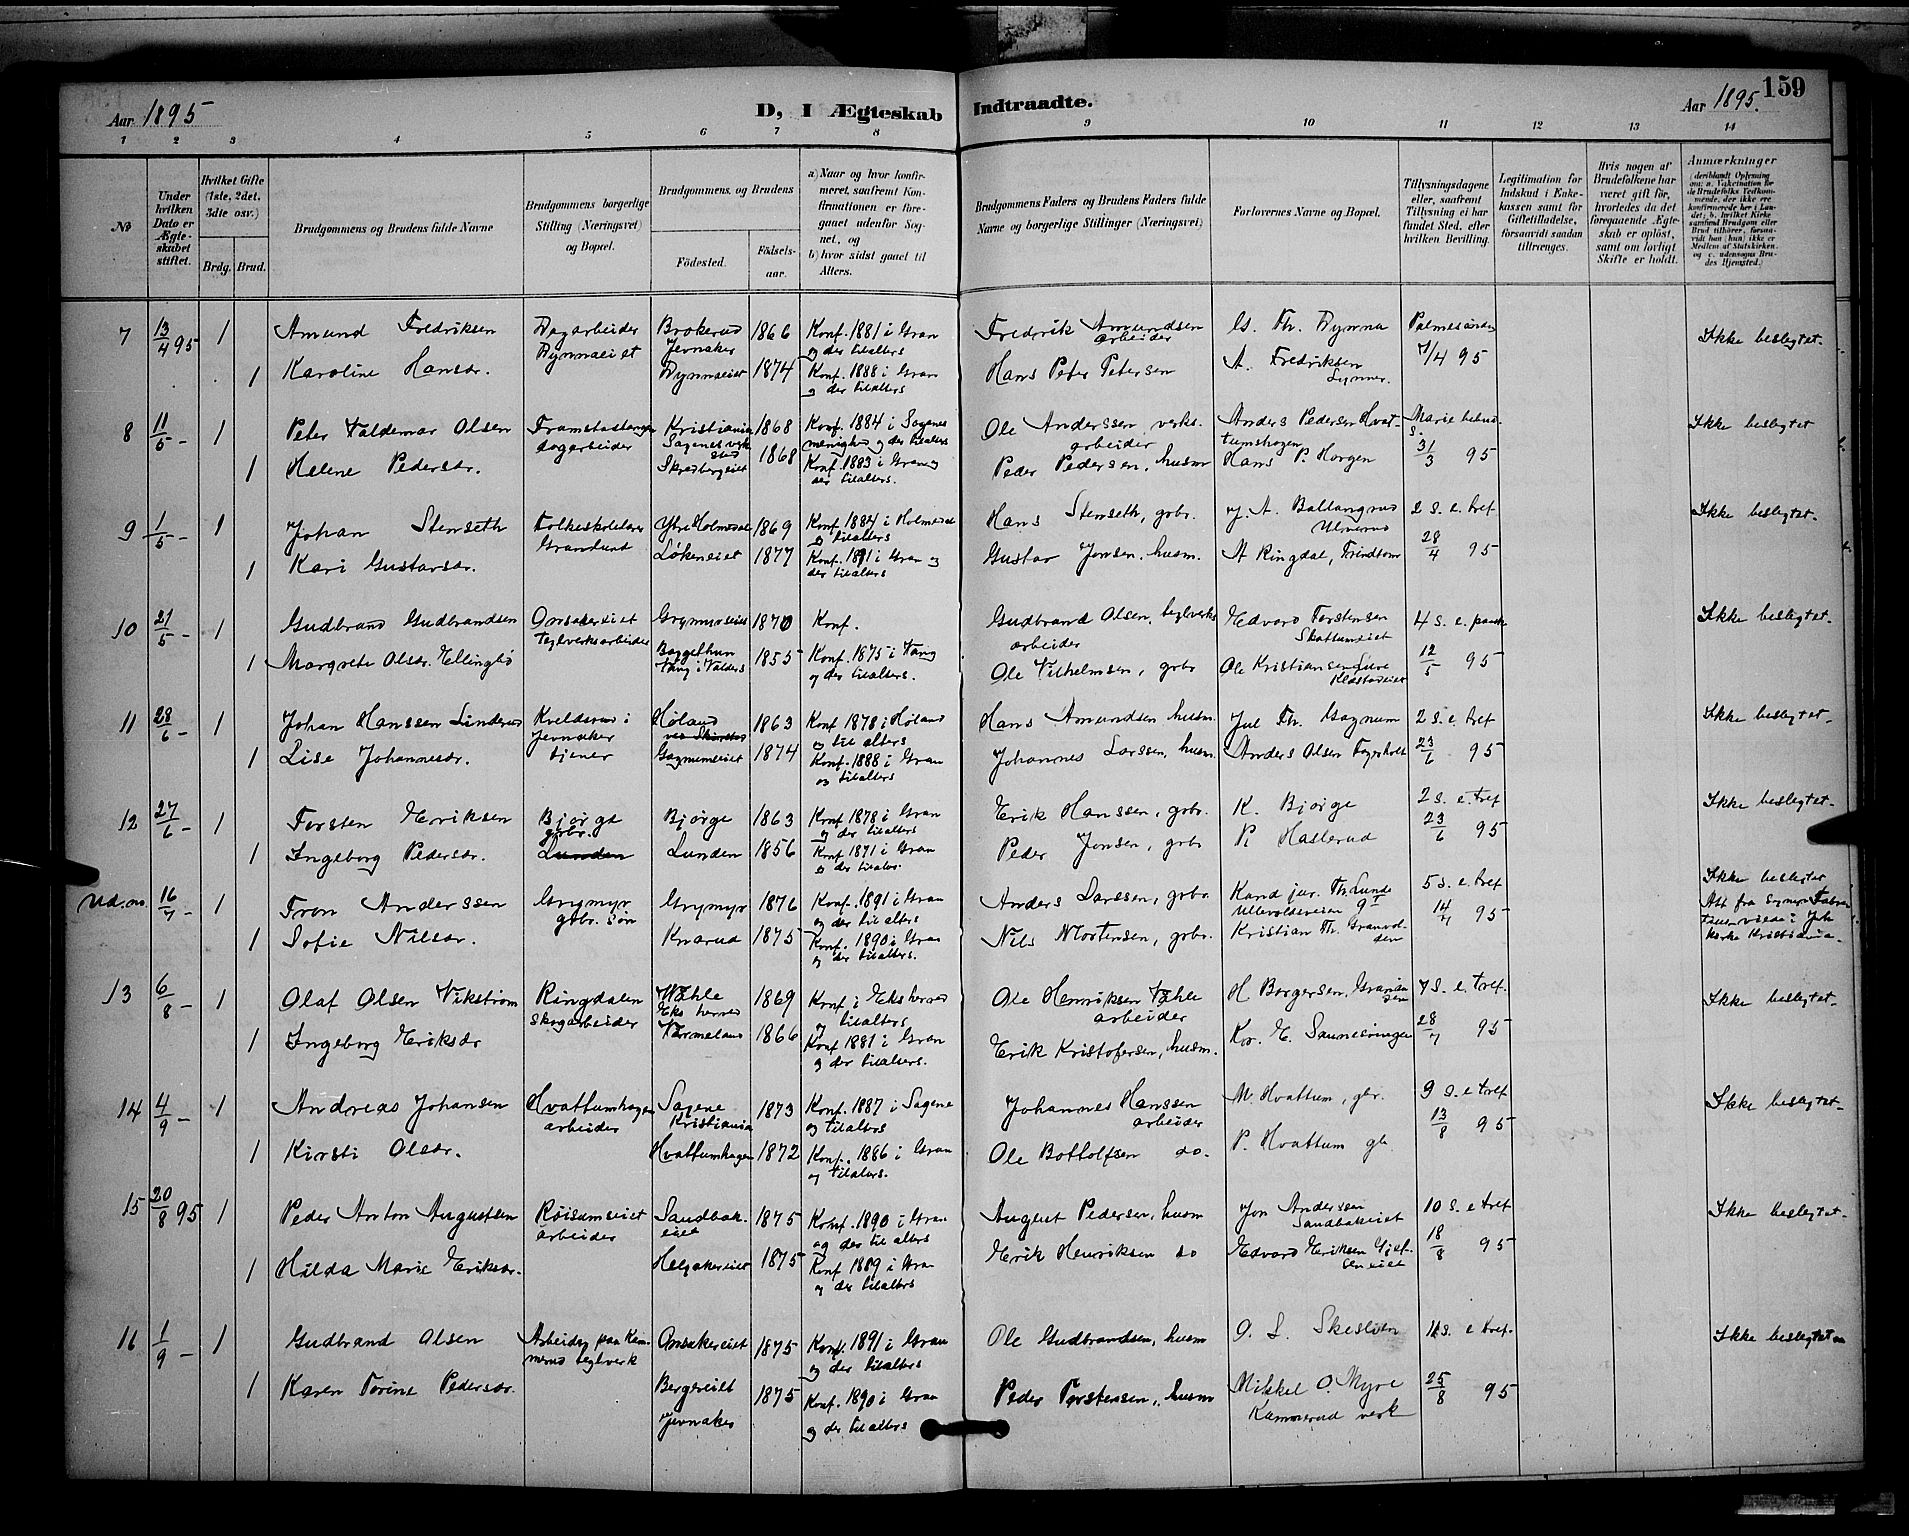 159
Aar 1895
D, I Ægteskab Indtraadte.
Aar 1895.
1 2 3 4 5 6 7 8 9 10 11 12 13 14
No
Under hvilken Dato er Ægteskabet stiftet.
Hvilket Gifte (1ste, 2det, 3die osv.)
Brdg. Brud.
Brudgommens og Brudens fulde Navne
Brudgommens borgerlige Stilling (Næringsvei) og Bopæl.
Brudgommens og Brudens
Födested.
Födselsaar.
a) Naar og hvor konfirmeret, saafremt Konfirmationen er foregaaet udenfor Sognet, og
b) hvor sidst gaaet til Alters.
Brudgommens Faders og Brudens Faders fulde Navne og borgerlige Stillinger (Næringsvei)
Forlovernes Navne og Bopæl.
Tillysningsdagene eller, saafremt Tillysning ei har fundet Sted, efter hvilken Bevilling.
Legitimation for Indskud i Enkekassen samt for Giftetilladelse, forsaavidt saadan tiltrænges.
Hvis nogen af Brudefolkene har været gift för, hvorledes da det foregaaende Ægteskab er oplöst, samt om lovligt Skifte er holdt.
Anmærkninger (deriblandt Oplysning om: a. Vakcination for de Brudefolks Vedkommende, der ikke ere konfirmerede her i Landet; b. hvilket Kirkesamfund Brudgom eller Brud tilhörer, forsaavidt han (hun) ikke er Medlem af Statskirken, og c. udensogns Brudes Hjemsted.)
7 13/4 95 1 Amund Fredriksen Dagarbeider Dynnaeiet Brokerud Jevnaker 1866 Konf. 1881 i Gran og der tilalters Fredrik Amundsen arbeider G. Th. Dynna Palmesönd. Ikke beslegtet.
1 Karoline Hansdr. Dynnaeiet 1874 Konf. 1888 i Gran og der tilalters Hans Peter Petersen A. Fredriksen 7/4 95
8 11/5 - 1 Peter Valdemar Olsen Framstadtangen dagarbeider Kristiania Sagenes verksted 1868 Konf. 1884 i Sagenes menighed og der tilalters Ole Anderssen verksarbeider Anders Pedersen Hvattumshagen Marie bebud. Ikke beslegtet
1 Helene Pedersdr. Skredbergeiet 1868 Konf. 1883 i Gran og der tilalters. Peder Pedersen, husm Hans P. Horgen 31/3 95
9 1/5 - 1 Johan Stenseth Folkeskolelærer Granlund Ytre Holmedal 1869 Konf. 1884 i Holmedal og tilalters Hans Stenseth, grbr. J. A. Ballangrud Ulverud 2 S. e. tref Ikke beslegtet.
1 Kari Gustavsdr. Løkeneiet 1877 Konf. 1891 i Gran og der tilalters Gustav Jonsen. husm. A Ringdal, Trindtom 28/4 95
10 21/5 - 1 Gudbrand Gudbrandsen Onsakereiet teglverksarbeider Grymyreiet 1870 Konf. Gudbrand Olsen, teglverksarbeider Edvard Torstensen Skattumeiet 4 S. e. paask Ikke beslegtet.
1 Margrete Olsdr. Ellingbø Baggethun Vang i Valders 1855 Konf. 1875 i Vang og der tilalters. Ole Vilhelmsen, grbr Ole Kristiansen Lure Klæstadeiet 12/5 95
11 28/6 - 1 Johan Hanssen Linderud Kveldsrud i Jevnaker tjener Høland 1863 Konf 1878 i Høland og til alters Hans Amundsen, husm. Jul Th. Gagnum 2 S. e. tref Ikke beslegtet.
1 Lise Johannesdr. Gagnumeiet 1874 Konf. 1888 i Gran og tilalters Johannes Larssen, husm. Anders Olsen 23/6 95
12 27/6 - 1 Torsten Eriksen Bjørge grbr. Bjørge 1863 Konf 1878 i Gran og der tilalters Erik Hanssen, grbr. K. Bjørge 2 S. e. tref Ikke beslegtet.
1 Ingeborg Pedersdr. Lunden Lunden 1856 Konf 1871 i Gran og der tilalters. Peder Jonsen, grbr P. Haslerud 23/6 95
Ud.m. 16/7 - 1 Tron Anderssen Grymyr grbr. søn Grymyr 1876 Konf. 1891 i Gran og der til alters Anders Larssen, grbr. Kand jur. Th. Lunde Ullevoldsveien 5 S. e. tref Ikke beslegtet Att fra
1 Sofie Nilsdr. Knarud 1875 Konf. 1890 i Gran og der tilalters. Nils Mortensen, grbr. Kristian Th. Granvolden 14/7 95 kirke Kristiania.
13 6/8 - 1 Olaf Olsen Vikstrøm Ringdalen skogarbeider Vahle Eks herred Värmeland 1869 Konf. i Eks herred og tilalters Ole Henriksen Vahle arbeider H Borgersen, 7 S. e. tref. Ikke beslegtet.
1 Ingeborg Eriksdr 1866 Konf 1881 i Gran og der tilalters. Erik Kristofersen, husm. Kor. E. 28/7 95
14 4/9 - 1 Andreas Johansen Hvattumhagen arbeider Sagene Kristiania 1873 Konf. 1887 i Sagene og tilalters Johannes Hanssen arbeider M. Hvattum, gbr. 9 S. e tref Ikke beslegtet.
1 Kirsti Olsdr. Hvattumhagen 1872 Konf. 1886 i Gran og tilalters. Ole Bottolfsen do. P. Hvattum gb 13/8 95
15 20/8 95 1 Peder Anton Augustsen Röisumeiet arbeider Sandbakeiet 1875 Konf. 1890 i Gran og der til alters August Pedersen, husm Jon Anderssen Sandbakeiet 10 S. e tref Ikke beslegtet.
1 Hilda Marie Eriksdr. Helgakereiet 1875 Konf 1889 i Gran og der tilalters Erik Henriksen do Edvard Eriksen 18/8 95
16 1/9 - 1 Gudbrand Olsen Arbeider paa Kammerud teglverk Onsakereiet 1875 Konf. 1891 i Gran og der tilalters Ole Gudbrandsen, husm O. L. Skeslien 11 S. e tref. Ikke beslegtet
1 Karen Torine Pedersdr. Bergereiet Jevnaker 1875 Konf. 1890 i Gran og der tilalters Peder Torstensen, husm Mikkel O. Myre Kammerud verk 25/8 95